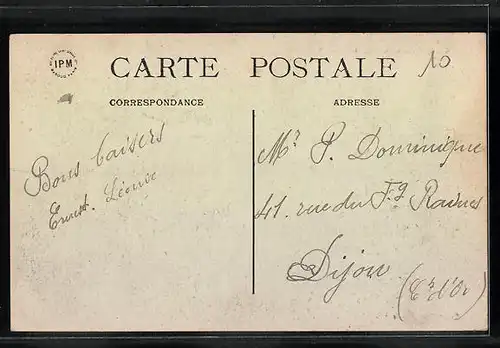 IPM
CARTE POSTALE
10
CORRESPONDANCE
ADRESSE
Bons baisers
Ernest. Léonie
Mr. P. Dominique
41. rue du Fg Raines
Dijon
(Cte d'Or)